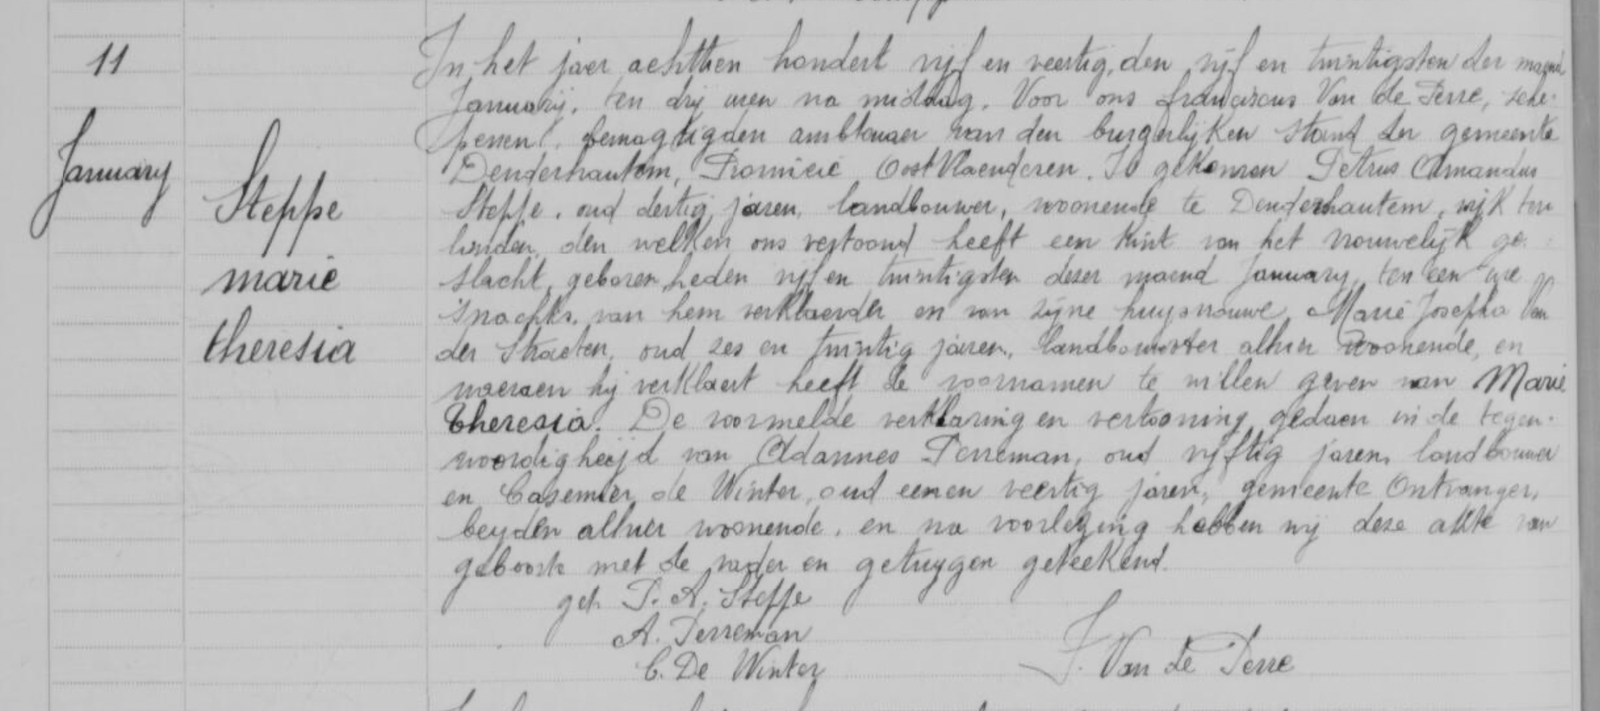 11
January
Steppe
marie
theresia
In het jaer achttien hondert vijf en veertig, den vijf en twintigsten der maend
January, ten drij uren na middag. Voor ons franciscus Van de Perre, sche-
penen, gemagtigden ambtenaer van den burgerlijken stand der gemeente
Denderhautem, Provincie Oost Vlaenderen. Is gekomen Petrus Amandus
Steppe, oud dertig jaren, landbouwer, woonende te Denderhautem, wijk ten
, den welken ons vertoond heeft een kint van het vrouwelijk ge-
slacht, geboren heden vijf en twintigsten dezer maend January, ten een ure
's nachts, van hem verklaerder en van zijne huysvrouwe, Marie Josepha Van
der Straeten, oud zes en twintig jaren, landbouwster alhier woonende, en
waeraen hij verklaert heeft de voornamen te willen geven van Marie
theresia. De voormelde verklaring en vertooning gedaen in de tegen-
woordigheijd van Perreman, oud vijftig jaren, landbouwer
en Casemier de Winter, oud eenen veertig jaren, gemeente Ontvanger,
beyden alhier woonende, en na voorlezing hebben wij deze akte van
geboorte met de vader en getuygen geteekend.
get. P. A. Steppe
A. Perreman
C. De Winter
F. Van de Perre